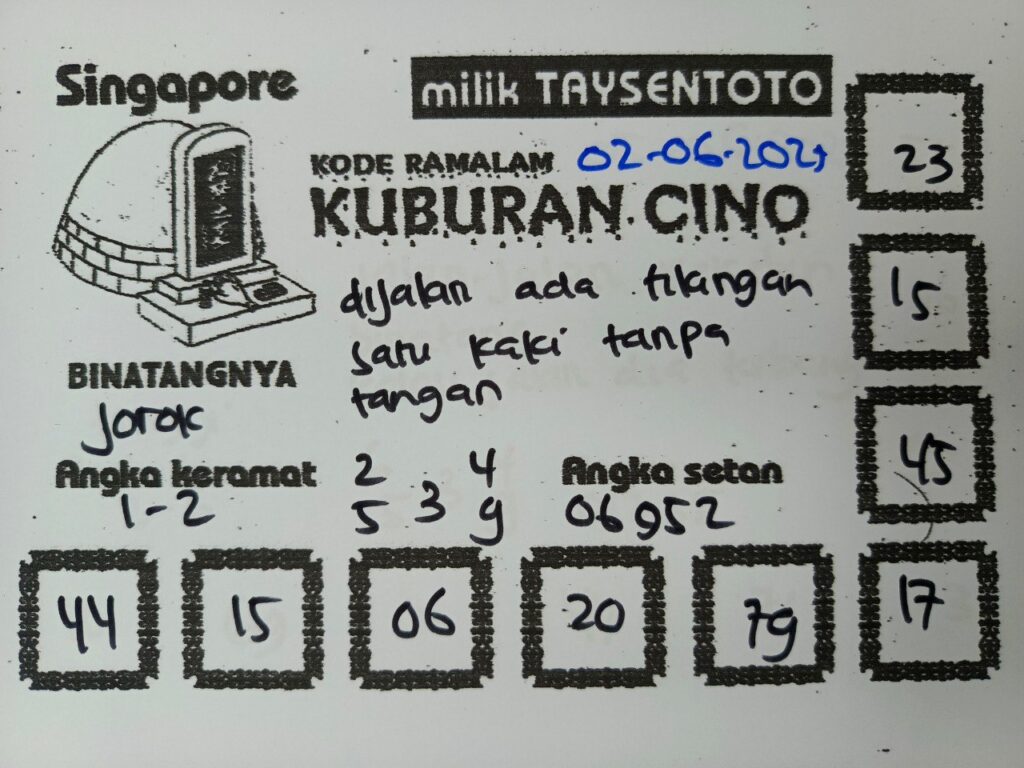 Singapore
milik TAYSENTOTO
KODE RAMALAM
KUBURAN CINO
dijalan ada tilangan
satu kaki tanpa
tangan
BINATANGNYA
Jorok
Angka keramat
1-2
2 4
3
5 9
Angka setan
06952
23
15
45
17
44 15 06 20 79